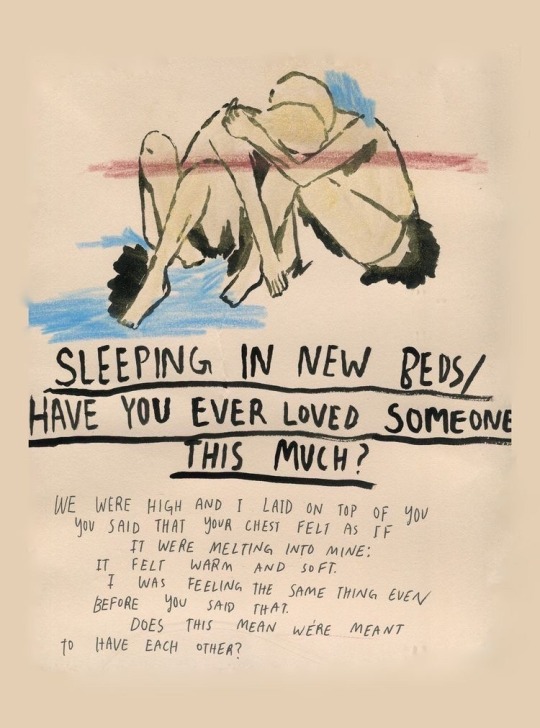 SLEEPING IN NEW BEDS/
HAVE YOU EVER LOVED SOMEONE
THIS MUCH?
WE WERE HIGH AND I LAID ON TOP OF YOU
YOU SAID THAT YOUR CHEST FELT AS IF
IT WERE MELTING INTO MINE:
IT FELT WARM AND SOFT.
I WAS FEELING THE SAME THING EVEN
BEFORE YOU SAID THAT.
DOES THIS MEAN WE'RE MEANT
TO HAVE EACH OTHER?